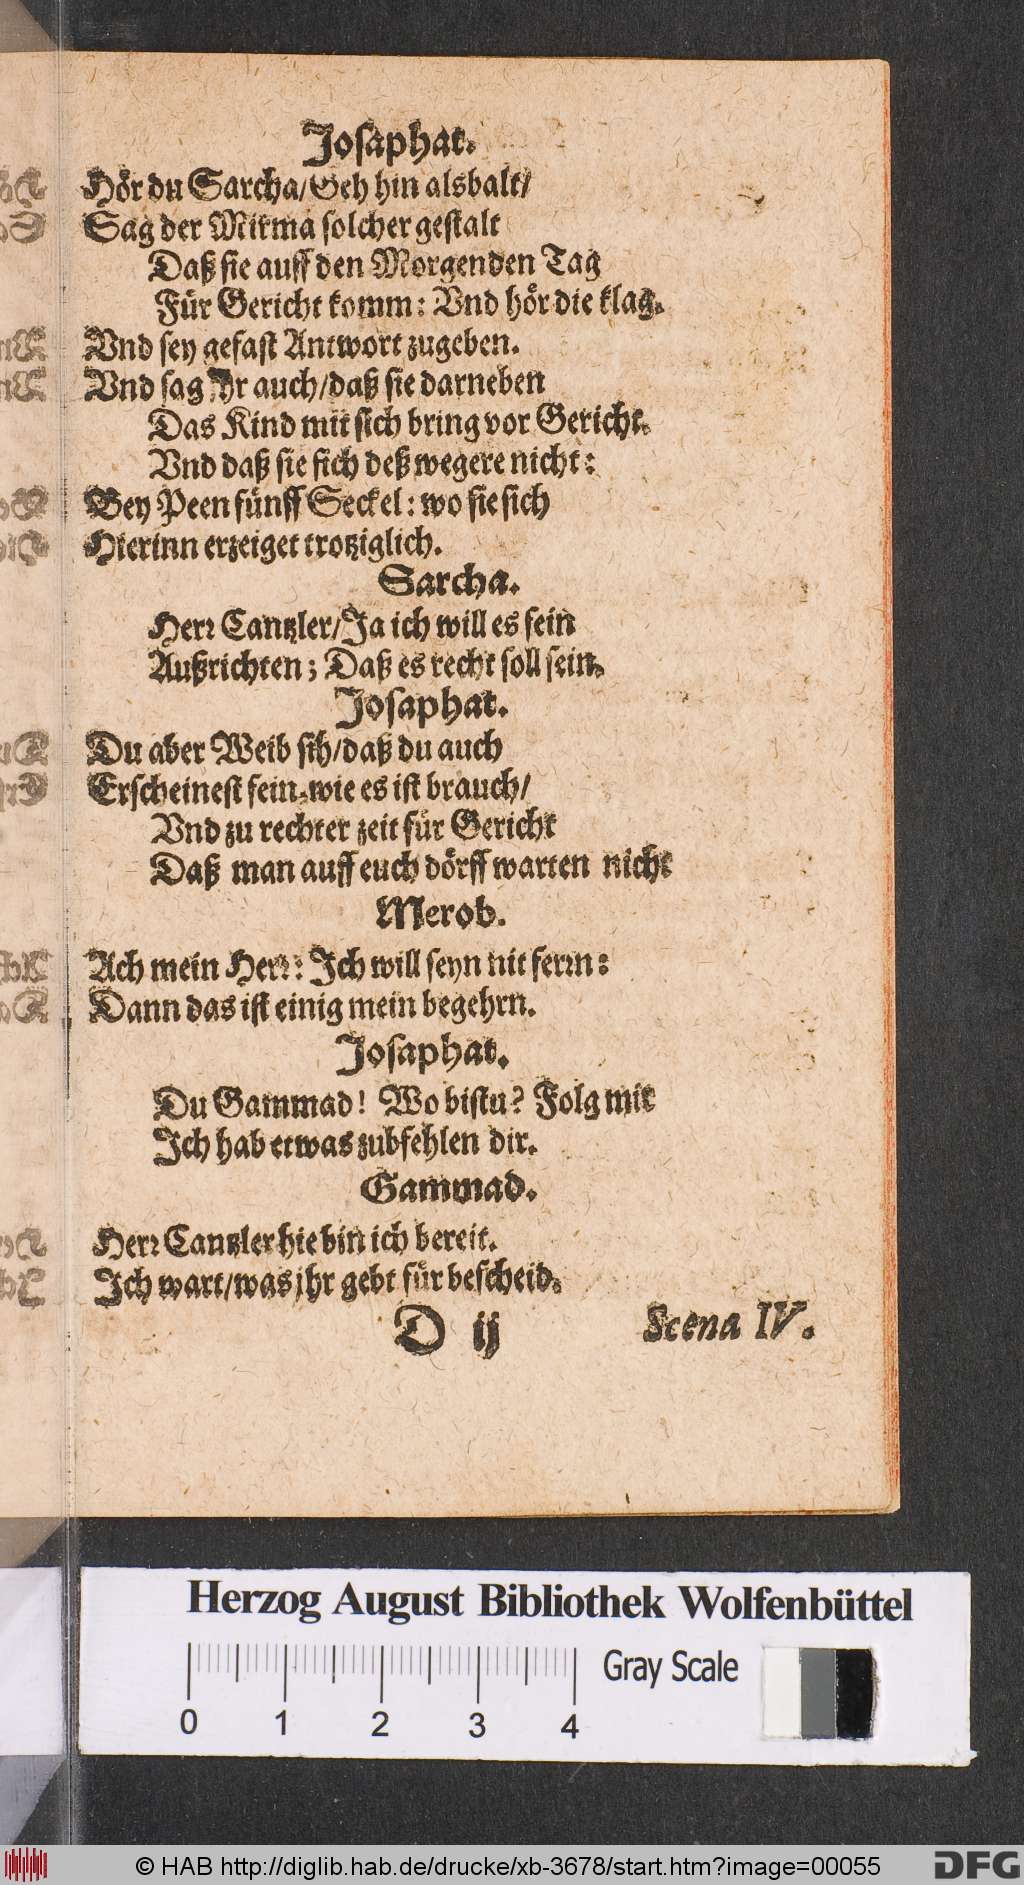 Josaphat.
Hör du Sarcha/Geh hin alsbalt/
Sag der Mirma solcher gestalt
Daß sie auff den Morgenden Tag
Für Gericht komm: Vnd hör die klag.
Vnd sey gefast Antwort zugeben.
Vnd sag Jhr auch/daß sie darneben
Das Kind mit sich bring vor Gericht.
Vnd daß sie sich deß wegere nicht:
Bey Peen fünff Seckel: wo sie sich
Hierinn erzeiget trotziglich.
Sarcha.
Herr Cantzler/Ja ich will es fein
Außrichten; Daß es recht soll sein.
Josaphat.
Du aber Weib sih/daß du auch
Erscheinest fein-wie es ist brauch/
Vnd zu rechter zeit für Gericht
Daß man auff euch dörff warten nicht
Merob.
Ach mein Herr: Ich will seyn nit ferrn:
Dann das ist einig mein begehrn.
Josaphat.
Du Gammad! Wo bistu? Folg mir
Ich hab etwas zubfehlen dir.
Gammad.
Herr Cantzler hie bin ich bereit.
Ich wart/was jhr gebt für bescheid.
D ij Scena IV.
Herzog August Bibliothek Wolfenbüttel
Gray Scale
0 1 2 3 4
© HAB http://diglib.hab.de/drucke/xb-3678/start.htm?image=00055 DFG